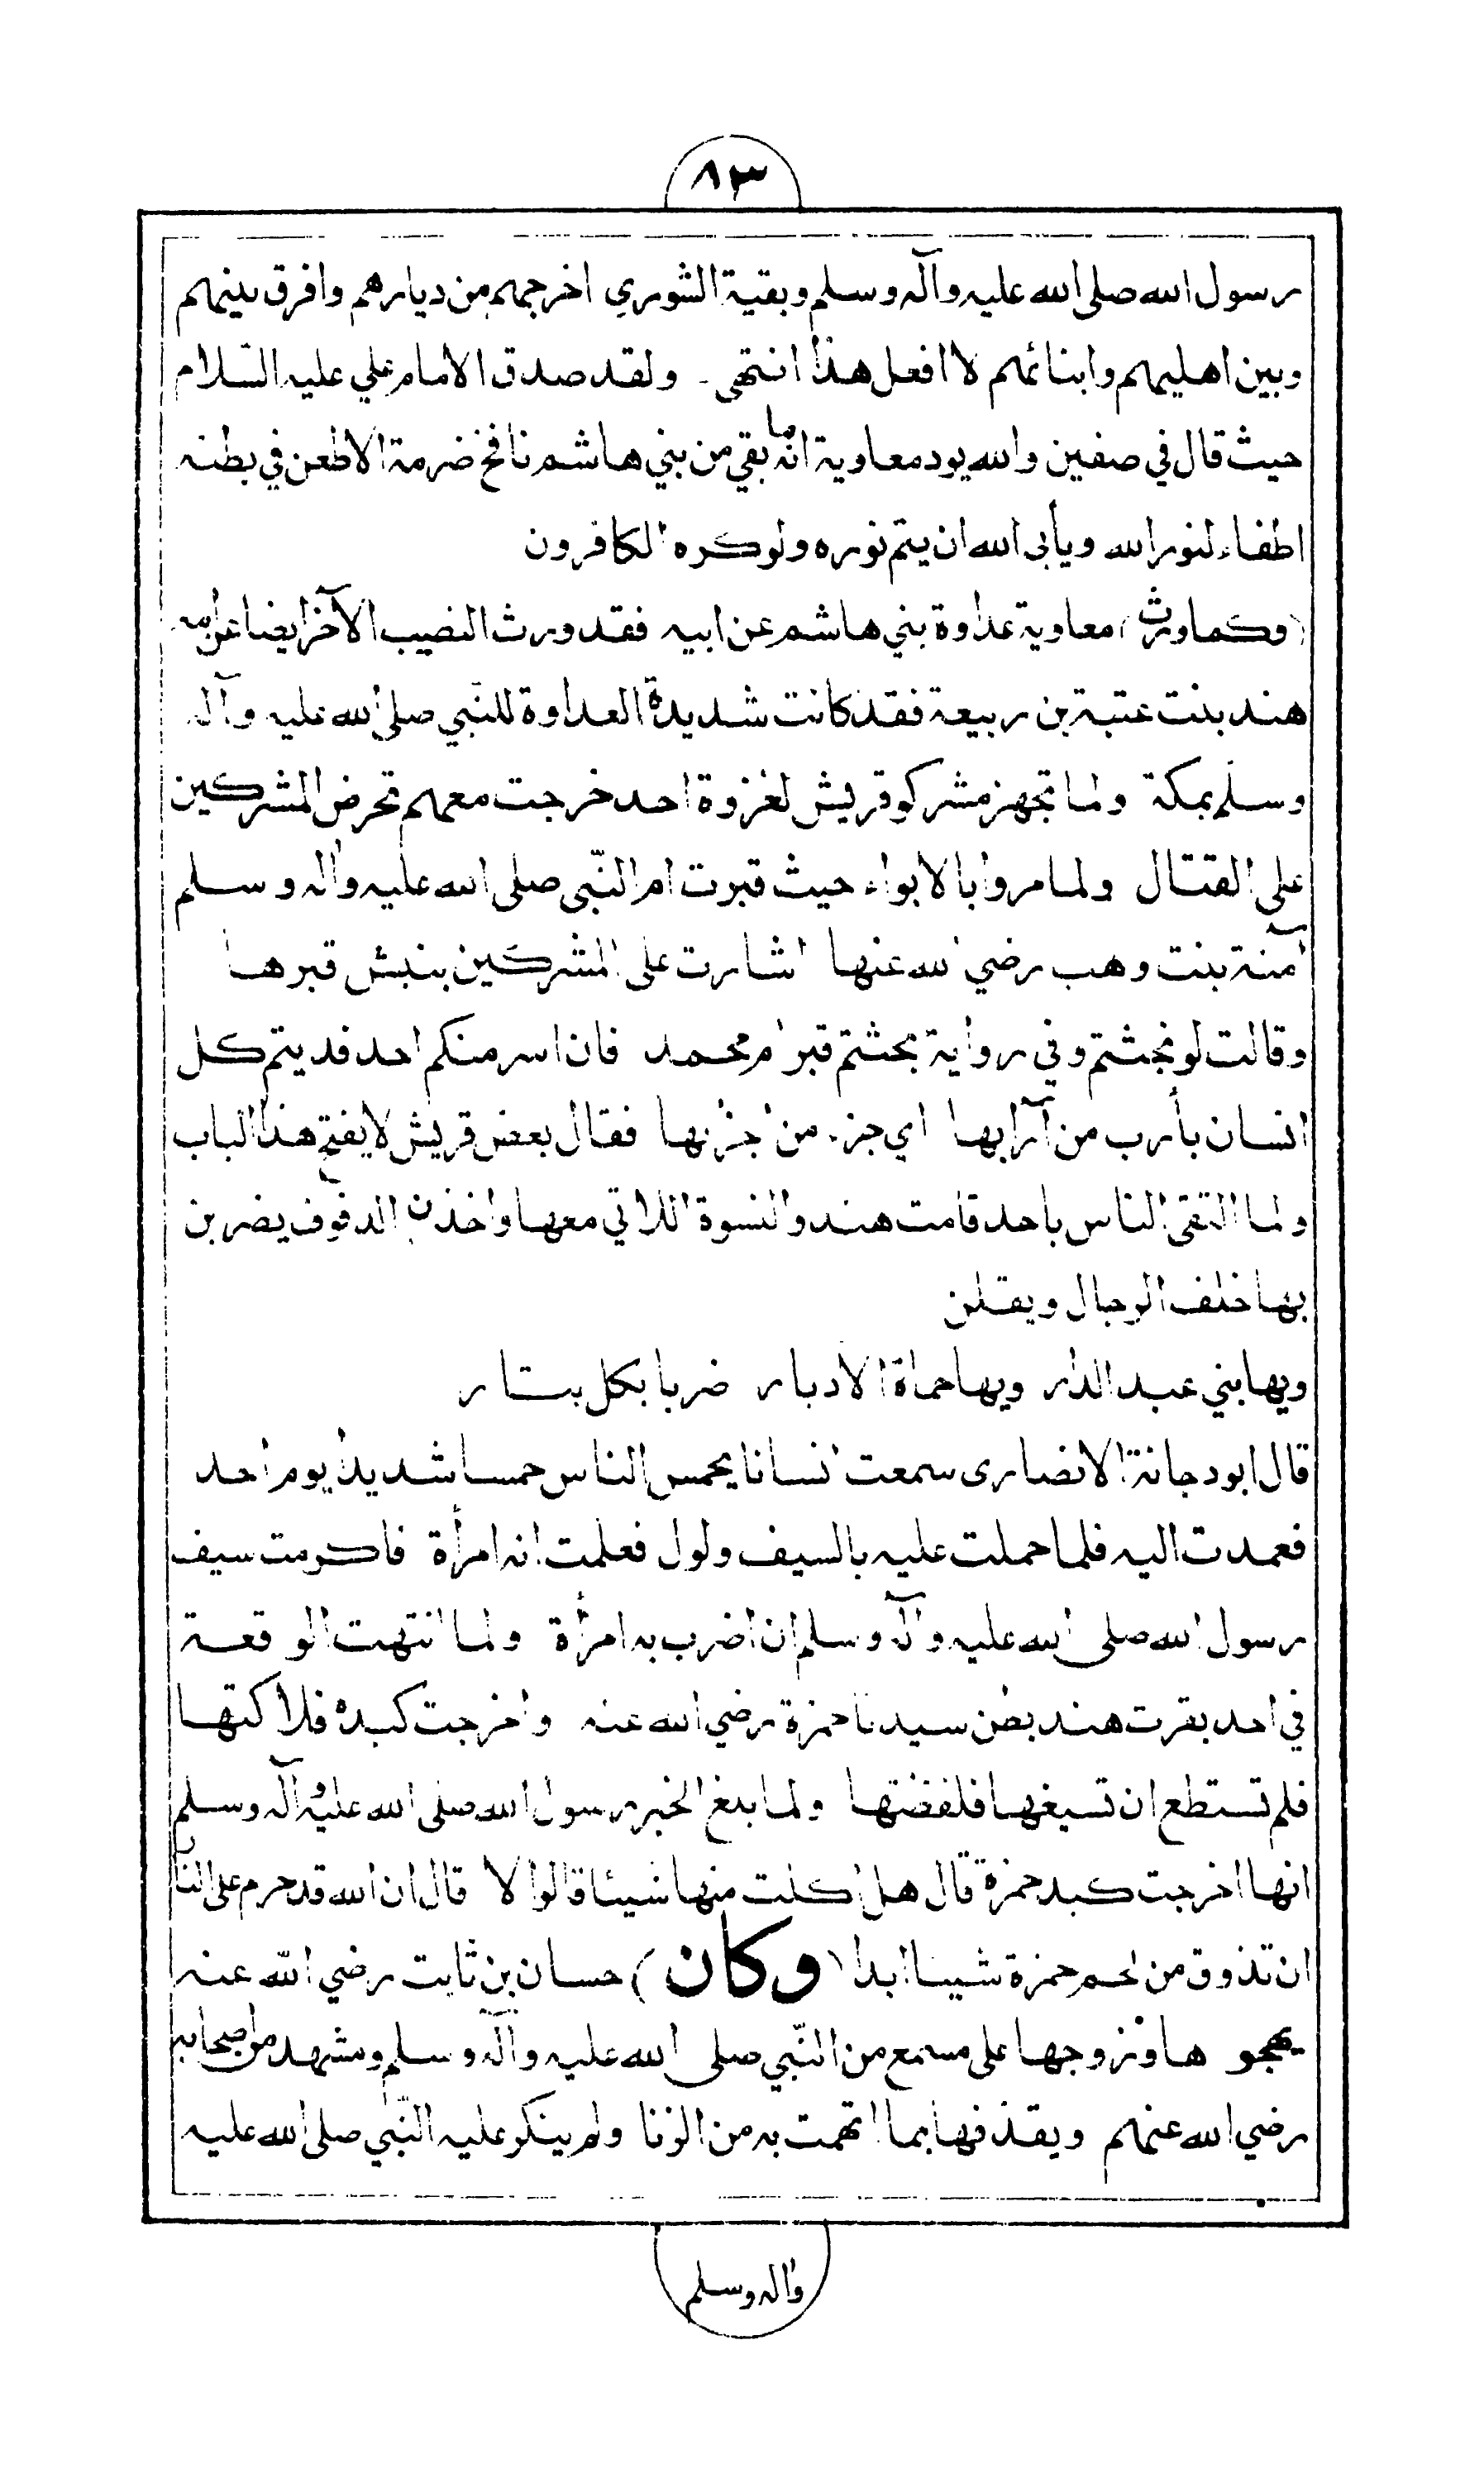 ٨٣
رسول الله صلى الله عليه وآله وسلم وبقية الشورى اخرجهم من ديارهم وافرق بينهم
وبين اهليهم وابنائهم لا افعل هذا انتهى ـ ولقد صدق الامام علي عليه السّلام
حيث قال في صفين والله يود معاوية انه ما بقي من بني هاشم نافخ ضرمة الا طعن في بطنه
اطفاء لنور الله ويأبى الله ان يتم نوره ولو كره الكافرون
(وكما ورث) معاوية عداوة بني هاشم عن ابيه فقد ورث النصيب الآخر ايضا عن امه
هند بنت عتبة بن ربيعة فقد كانت شديدة العداوة للنبي صلى الله عليه وآله
وسلم بمكة ولما تجهز مشركو قريش لغزوة احد خرجت معهم تحرض المشركين
على القتال ولما مروا بالابواء حيث قبرت ام النّبي صلى الله عليه واله وسلم
آمنة بنت وهب رضي الله عنها اشارت على المشركين بنبش قبرها
وقالت لو نجثتم وفي رواية بحثتم قبر ام محمد فان اسر منكم احد فديتم كل
انسان بأرب من آرابها اي جزء من اجزائها فقال بعض قريش لا يفتح هذا الباب
ولما التقى الناس باحد قامت هند والنسوة اللاتي معها واخذن الدفوف يضربن
بها خلف الرجال ويقلن
ويها بني عبد الدار ويها حماة الادبار ضربا بكل بتار
قال ابو دجانة الانصاري سمعت انسانا يحمس الناس حمسا شديدا يوم احد
فعمدت اليه فلما حملت عليه بالسيف ولول فعلمت انه امرأة فاكرمت سيف
رسول الله صلى الله عليه وآله وسلم ان اضرب به امرأة ولما انتهت الوقعة
في احد بقرت هند بطن سيدنا حمزة رضي الله عنه واخرجت كبده فلاكتها
فلم تستطع ان تسيغها فلفظتها ولما بلغ الخبر رسول الله صلى الله عليه وآله وسلم
انها اخرجت كبد حمزة قال هل اكلت منها شيئا قالوا لا قال ان الله قد حرم على النار
ان تذوق من لحم حمزة شيئا ابدا (وكان) حسان بن ثابت رضي الله عنه
يهجو ها وزوجها على مسمع من النّبي صلى الله عليه وآله وسلم ومشهد من اصحابه
رضي الله عنهم ويقذفها بما اتهمت به من الزنا ولم ينكر عليه النّبي صلى الله عليه
واله وسلم